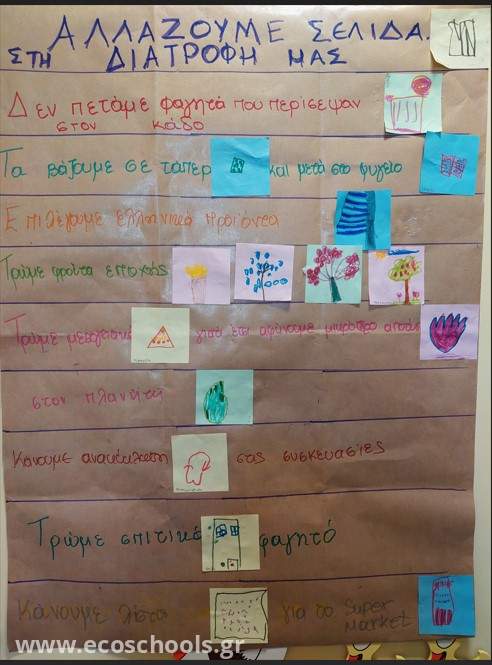 ΑΛΛΑΖΟΥΜΕ ΣΕΛΙΔΑ
ΣΤΗ ΔΙΑΤΡΟΦΗ ΜΑΣ
Δεν πετάμε φαγητά που περίσεψαν
στον κάδο
Τα βάζουμε σε ταπερ και μετά στο ψυγείο
Επιλέγουμε ελληνικά προϊόντα
Τρώμε φρούτα εποχής
Τρώμε γιατί έτσι αφήνουμε μικρότερο
στον πλανήτη
Κάνουμε ανακύκλωση στις συσκευασίες
Τρώμε σπιτικό φαγητό
Κάνουμε λίστα για το Super
Market
www.ecoschools.gr